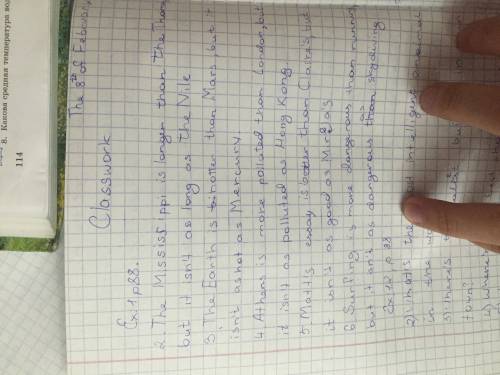 8. Какова средняя температура
114
The 8th of February
Classwork
Ex.1 p88.
2. The Mississippi is longer than the Thames
but it isn't as long as the Nile
3. The Earth is hotter than Mars but it
isn't as hot as Mercury.
4. Athens is more polluted than London, but
it isn't as polluted as Hong Kong.
5. Matt's essay is better than Claire's, but
it isn't as good as Mirga's
6. Surfing is more dangerous than running
but it isn't as dangerous as than skydiving
Ex. p 88
2) What's the intelligent
in the
3) There's but
town?
4) Where